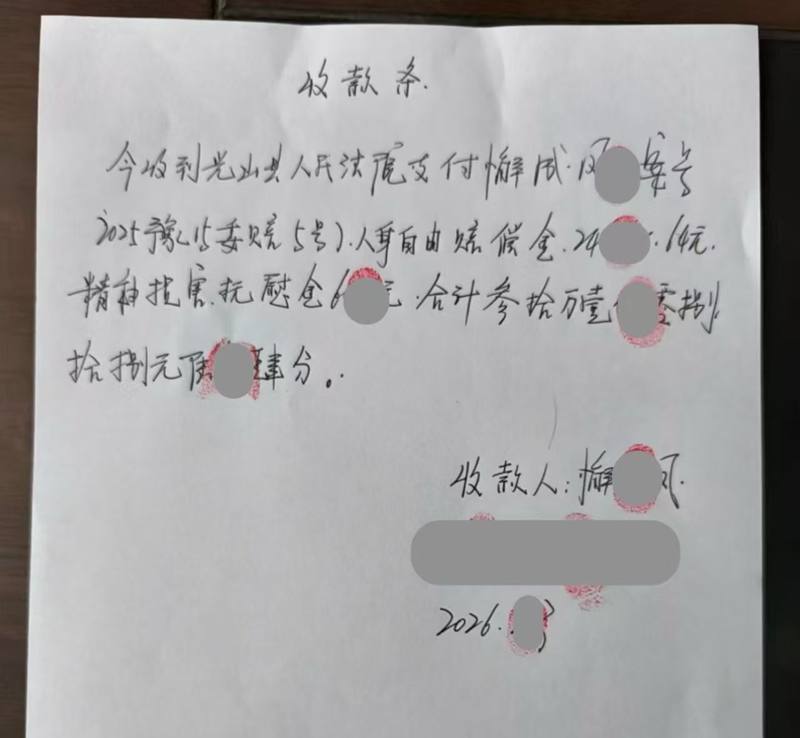 收款条.
今收到光山县人民法院支付懈成.凤 案号
2025豫15委赔5号).人身自由赔偿金.24 .64元.
精神损害.抚慰金6 元.合计参拾万壹 零捌
拾捌元陆 肆分。.
收款人:懈 凤.
2026.